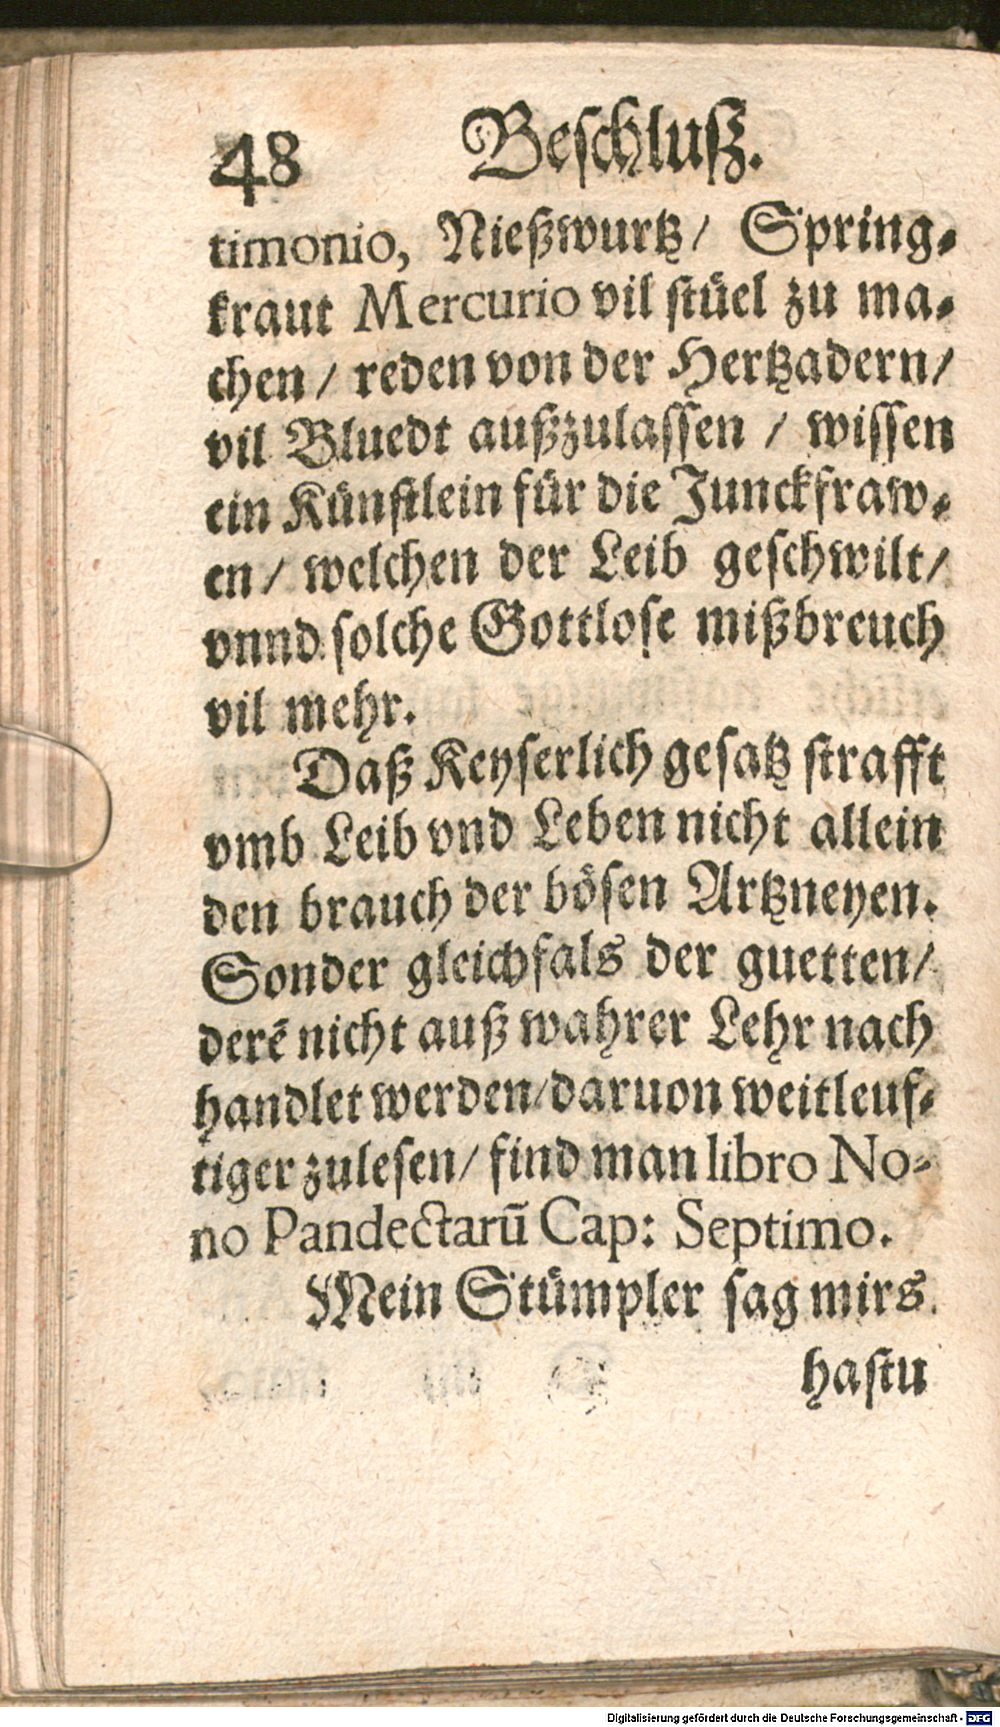 48 Beschluß.
timonio, Nießwurtz/ Spring-
kraut Mercurio vil stüel zu ma-
chen / reden von der Hertzadern/
vil Bluedt außzulassen / wissen
ein Künstlein für die Junckfraw-
en / welchen der Leib geschwilt/
vnnd solche Gottlose mißbreuch
vil mehr.
Daß Keyserlich gesatz strafft
vmb Leib vnd Leben nicht allein
den brauch der bösen Artzneyen.
Sonder gleichfals der guetten/
derē nicht auß wahrer Lehr nach
handlet werden/daruon weitleuf-
tiger zulesen/ find man libro No-
no Pandectarū Cap: Septimo.
Mein Stümpler sag mirs
hastu
Digitalisierung gefördert durch die Deutsche Forschungsgemeinschaft - DFG